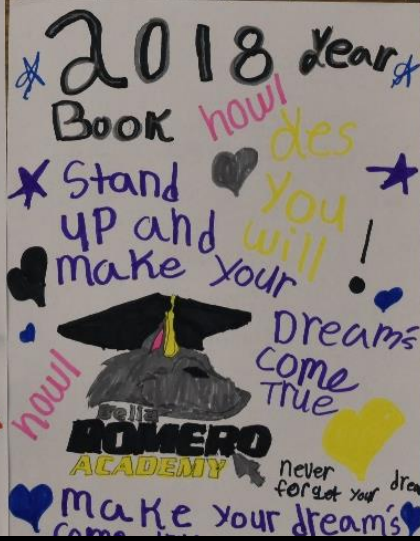 2018 Year
Book
howl
yes
you
will !
Stand
up and
make your
Dreams
come
True
howl
Feliz
ROMERO
ACADEMY
never
forget your
make your dream's
come